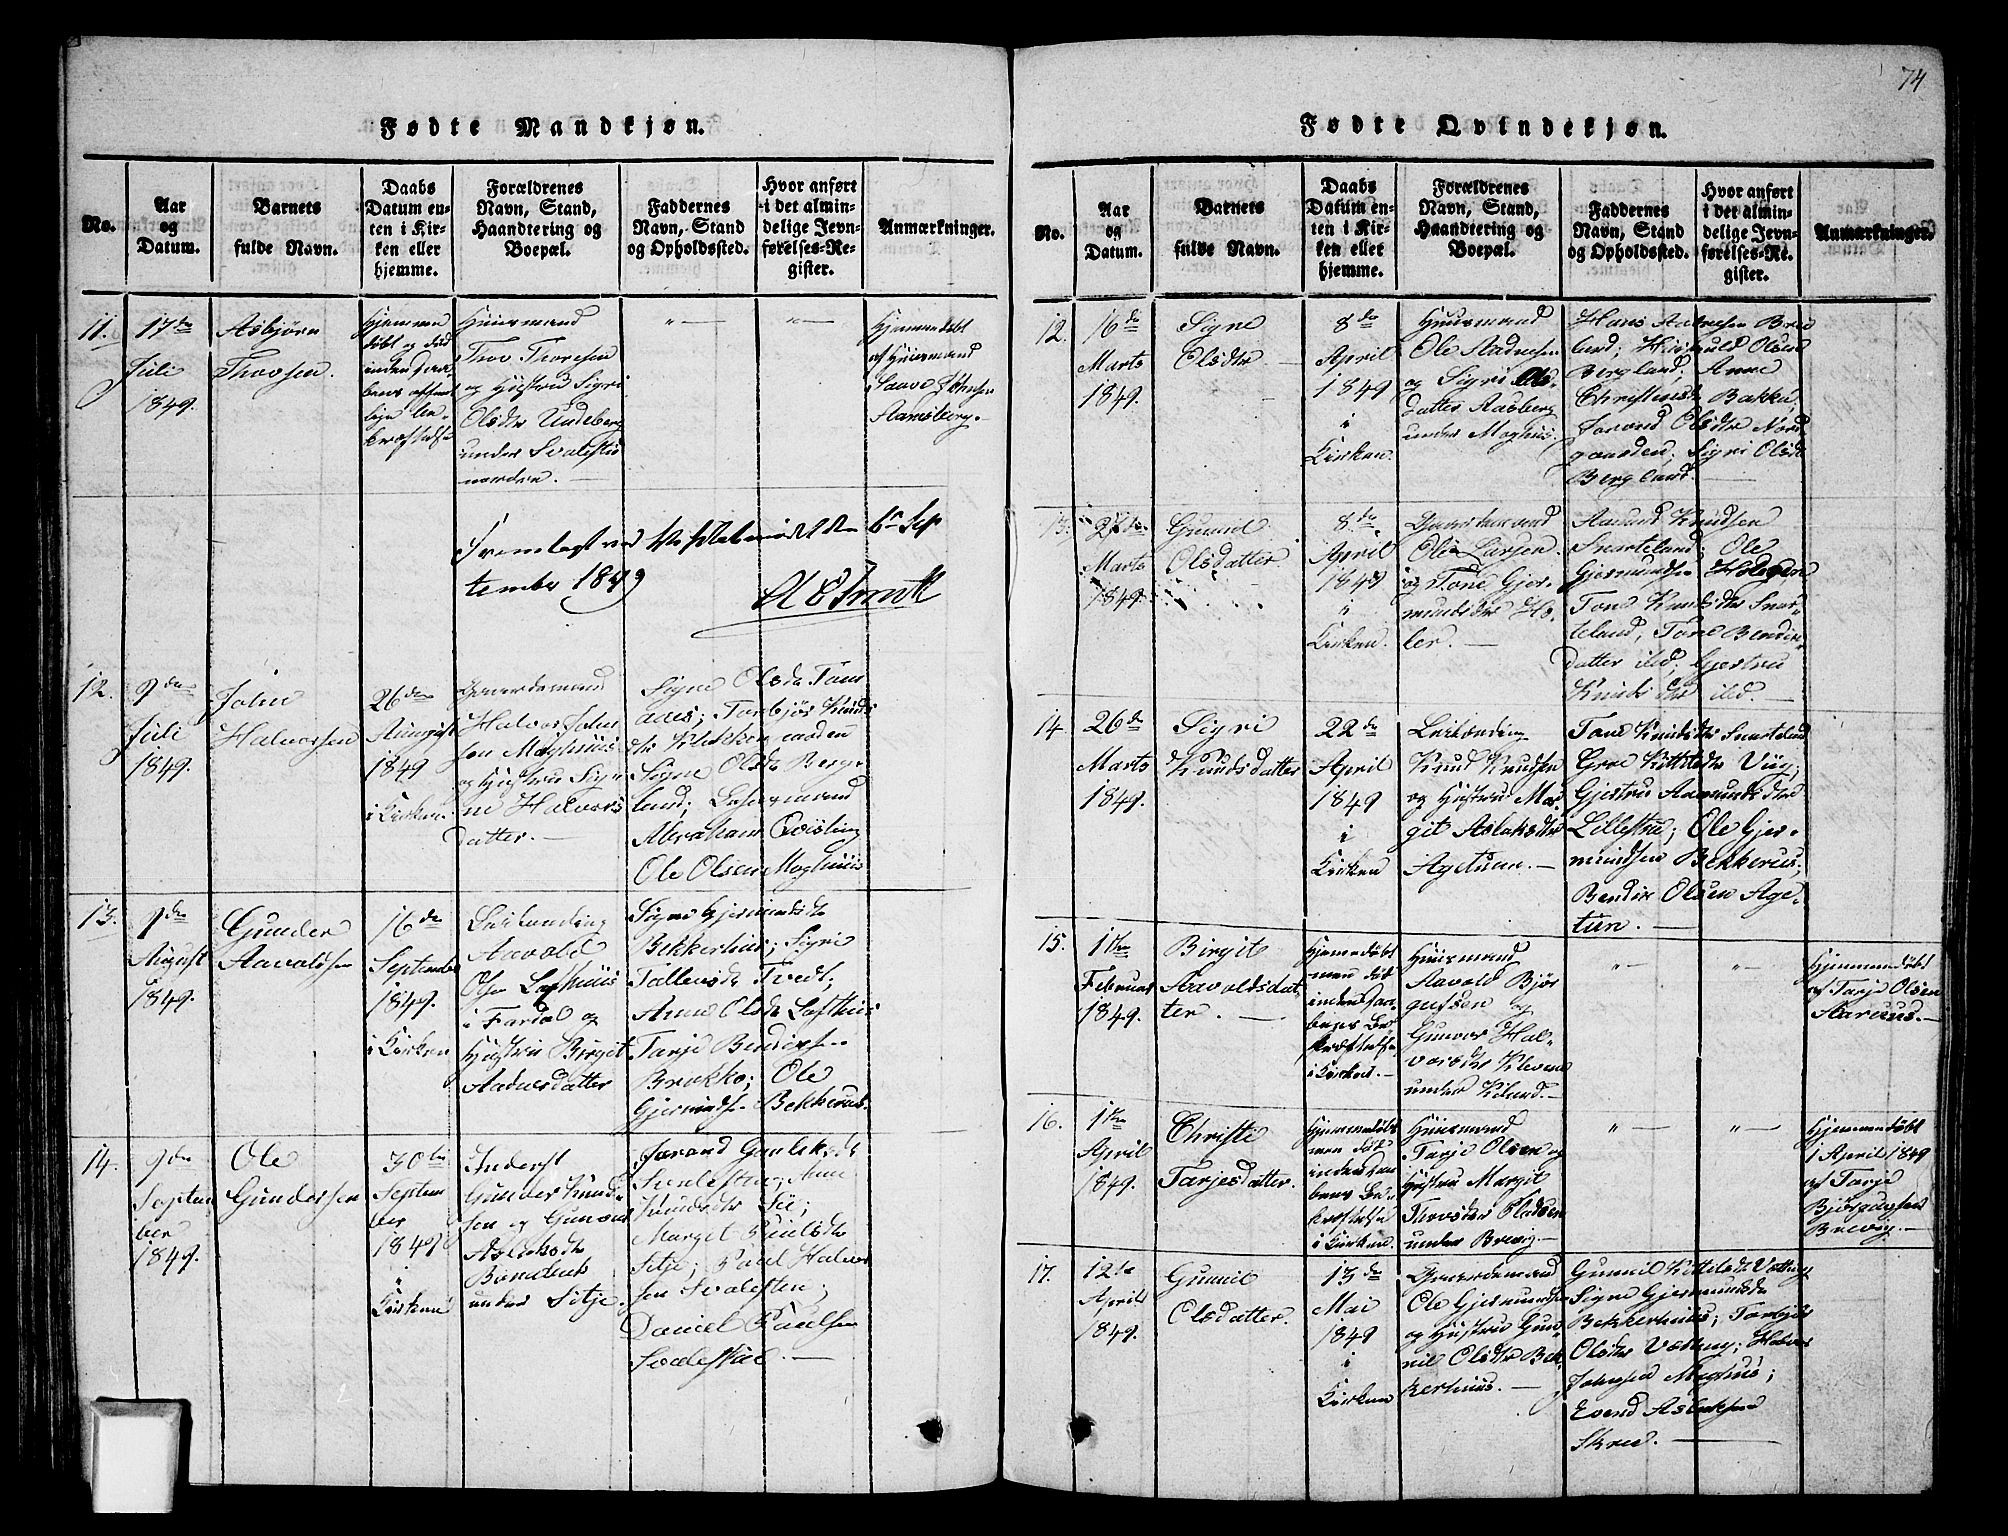 74
Fødte Mandkjøn.
No.
Aar
og
Datum.
Barnets
fulde Navn.
Daabs
Datum en-
ten i Kir-
ken eller
hjemme.
Forældrenes
Navn, Stand,
Haandtering og
Boepæl.
Faddernes
Navn, Stand
og Opholdssted.
Hvor anført
i det almin-
delige Jevn-
førelses-Re-
gister.
Anmærkninger.
11.
17de
Juli
1849.
Asbjørn
Thovsen.
Hjemmen
døbt og død
inden Daa-
bens offent
lige be-
kræftelse
Huusmand
Thov Thovesen
og Hustru Sigri
Olsdtr Undeberg
under Svalestu
norden.
Hjemmedøbt
af Huusmand
Johnsen
Fremlagt ved den 6te Sep
tember 1849
12.
9de
Juli
1849.
John
Halvorsen
26de
August
1849
i Kirken
Gaardemand
Halvor John
sen Moghuus
og Hustru Sig-
ne Halvors
datter.
Signe Olsdtr
Torbjør Knuds
dtr
Signe Olsdtr Berg-
land;
Abraham Qvisling
Ole Olsen Moghuus
13.
9de
August
1849.
Gunder
Aavoldsen
16de
September
1849.
i Kirken
Leilænding
Aavold
Olsen Lofthuus
i Fardal og
Hustru Birgit
Aadnesdatter
Signe Gjermundsdtr
Bekkerhus; Sigri
Tallevsdtr Tvedt;
Anne Olsdtr Lofthus
Tarje Bendixsen
Brokke; Ole
Gjermunds. Bekkerus.
14.
9de
Septem
ber
1849.
Ole
Gundersen
30te
Septem
ber
1849
i
Kirken
Inderst
Gunder Knud
sen og Gunvor
Aslaksdtr
under Sitje.
Jorand Gunleksdtr
Anne
Knudsdtr
Margit Paulsdtr
Sitje; Paul Halvor
sen Svalesten;
Daniel Paulsen
Svalestue.
Fødte Qvindekjøn.
No.
Aar
og
Datum.
Barnets
fulde Navn.
Daabs
Datum en-
ten i Kir-
ken eller
hjemme.
Forældrenes
Navn, Stand,
Haandtering og
Boepæl.
Faddernes
Navn, Stand
og Opholdssted.
Hvor anført
i det almin-
delige Jevn-
førelses-Re-
gister.
Anmærkninger.
12.
16de
Marts
1849.
Signe
Olsdtr
8de
April
1849
i
Kirken.
Huusmand
Ole Aadnesen
og Sigri Ols-
datter Aasberg
under Moghus.
Hans Aadnesen Brei
land; Olsen
Bergland; Anne
Christensdtr Bakke,
Jorond Olsdtr Nord
gaarden; Sigri Olsdtr
Bergland.
13.
27de
Marts
1849.
Gunnil
Olsdatter
8de
April
1849
i
Kirken.
Gaardemand
Ole Larsen
og Tone Gjer-
mundsdtr Ho-
ler.
Aamund Knudsen
Snarteland; Ole
Gjermundsen
Tone Knudsdtr Snar-
teland, Tone Bendix-
datter ibd; Gjertru
Knudsdtr ibd
14.
26de
Marts
1849.
Sigri
Knudsdatter
22de
April
1849
i
Kirken
Leilænding
Knud Knudsen
og Hustru Mar-
git Aslaksdtr
Agetuun.
Tone Knudsdtr Snarteland
Groe Kittilsdtr Viig;
Gjertru Aamundsdtr
Lillestue; Ole Gjer-
mundsen Bekkerus;
Bendix Olsen Age-
tun.
15.
11te
Februar
1849.
Birgit
Aavoldsdat
ter.
Hjemmedøbt
men død
inden Daa-
bens Be-
kræftelse
i Kirken.
Huusmand
Aavold Bjør
gufsen og
Gunvor Hal-
vorsdtr Kleven
under Kilund.
Hjemmedøbt
af Tarje Olsen
Aaruus.
16.
1te
April
1849.
Christi
Tarjesdatter.
Hjemmedøbt
men død
inden Daa
bens Be-
kræftelse
i Kirken.
Huusmand
Tarje Olsen og
Hustru Margit
Thovsdtr Pladsen
under Brevig.
Hjemmedøbt
1 April 1849
af Tarje
Bjørgufsen
Brevig.
17.
12te
April
1849.
Gunnil
Olsdatter.
13de
Mai
1849
i
Kirken
Gaardemand
Ole Gjermundsen
og Hustru Gun-
nil Olsdtr Bek-
kerhuus.
Gunnil Kittilsdtr
Signe Gjermundsdtr
Bekkerhuus; Torbjør
Olsdtr; Halvor
Johnsen Moghus;
Evend Aslaksen
Skree.